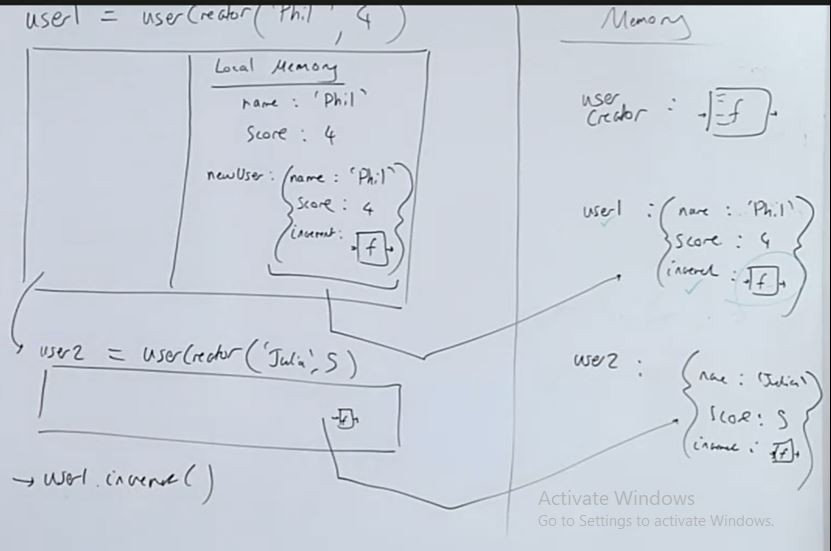 user1 = userCreator('Phil', 4)
Local Memory
name : 'Phil'
Score : 4
newUser : { name : 'Phil'
Score : 4
increment :
f
user2 = userCreator('Julia', 5)
f
→ user1.increment()
Memory
user
Creator :
f
user1 : { name : 'Phil'
Score : 4
increment : f
user2 :
{ name : 'Julia'
Score : 5
increment : f
Activate Windows
Go to Settings to activate Windows.